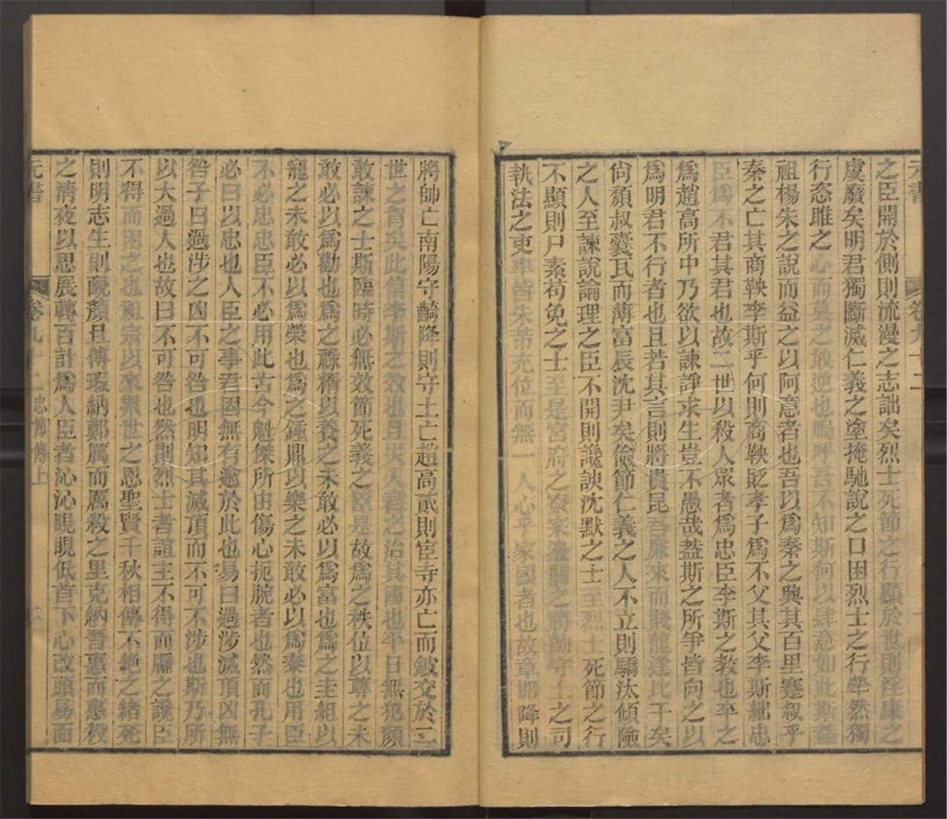 之臣開於側則流漫之志詘矣烈士死節之行顯於世則淫康之
虞廢矣明君獨斷滅仁義之塗掩馳說之口困烈士之行犖然獨
行恣睢之心而莫之敢逆也嗚呼吾不知斯何以肆意如此斯蓋
祖楊朱之說而益之以阿意者也吾以爲秦之興其百里蹇叔乎
秦之亡其商鞅李斯乎何則商鞅貶孝子爲不父其父李斯絀忠
臣爲不君其君也故二世以殺人眾者爲忠臣李斯之教也卒之
爲趙高所中乃欲以諫諍求生豈不愚哉蓋斯之所爭皆向之以
爲明君不行者也且若其言則將貴昆吾廉來而賤龍逢比干矣
尙頽叔襄瓦而薄富辰沈尹矣儉節仁義之人不立則驕汰傾險
之人至諫說論理之臣不開則讒諛沈默之士至烈士死節之行
不顯則尸素苟免之士至是宮府之寮寀邊關之將帥守土之司
執法之吏率皆朱芾充位而無一人心乎家國者也故章邯降則
將帥亡南陽守齮降則守土亡趙高貳則宦寺亦亡而斂交於二
世之首矣此信李斯之效也且夫人君之治其國也平日無犯顏
敢諫之士斯臨時必無效節死義之臣是故爲之秩位以尊之未
敢必以爲勸也爲之祿糈以養之未敢必以爲富也爲之圭組以
寵之未敢必以爲榮也爲之鍾鼎以樂之未敢必以爲泰也用臣
不必忠忠臣不必用此古今魁傑所由傷心扼腕者也然而孔子
必曰以忠也人臣之事君固無有逾於此也易曰過涉滅頂凶無
咎子曰過涉之凶不可咎也明知其滅頂而不可不涉也斯乃所
以大過人也故曰不可咎也然則烈士者誼主不得而屬之讒臣
不得而困之也祖宗以來累世之恩聖賢千秋相傳不絶之緒死
則明志生則靦顏且傅瑕納鄭厲而厲殺之里克納晉惠而惠殺
之清夜以思展轉百計爲人臣者沁沁睍睍低首下心改頭易面
元書 卷九十二 忠節傳上